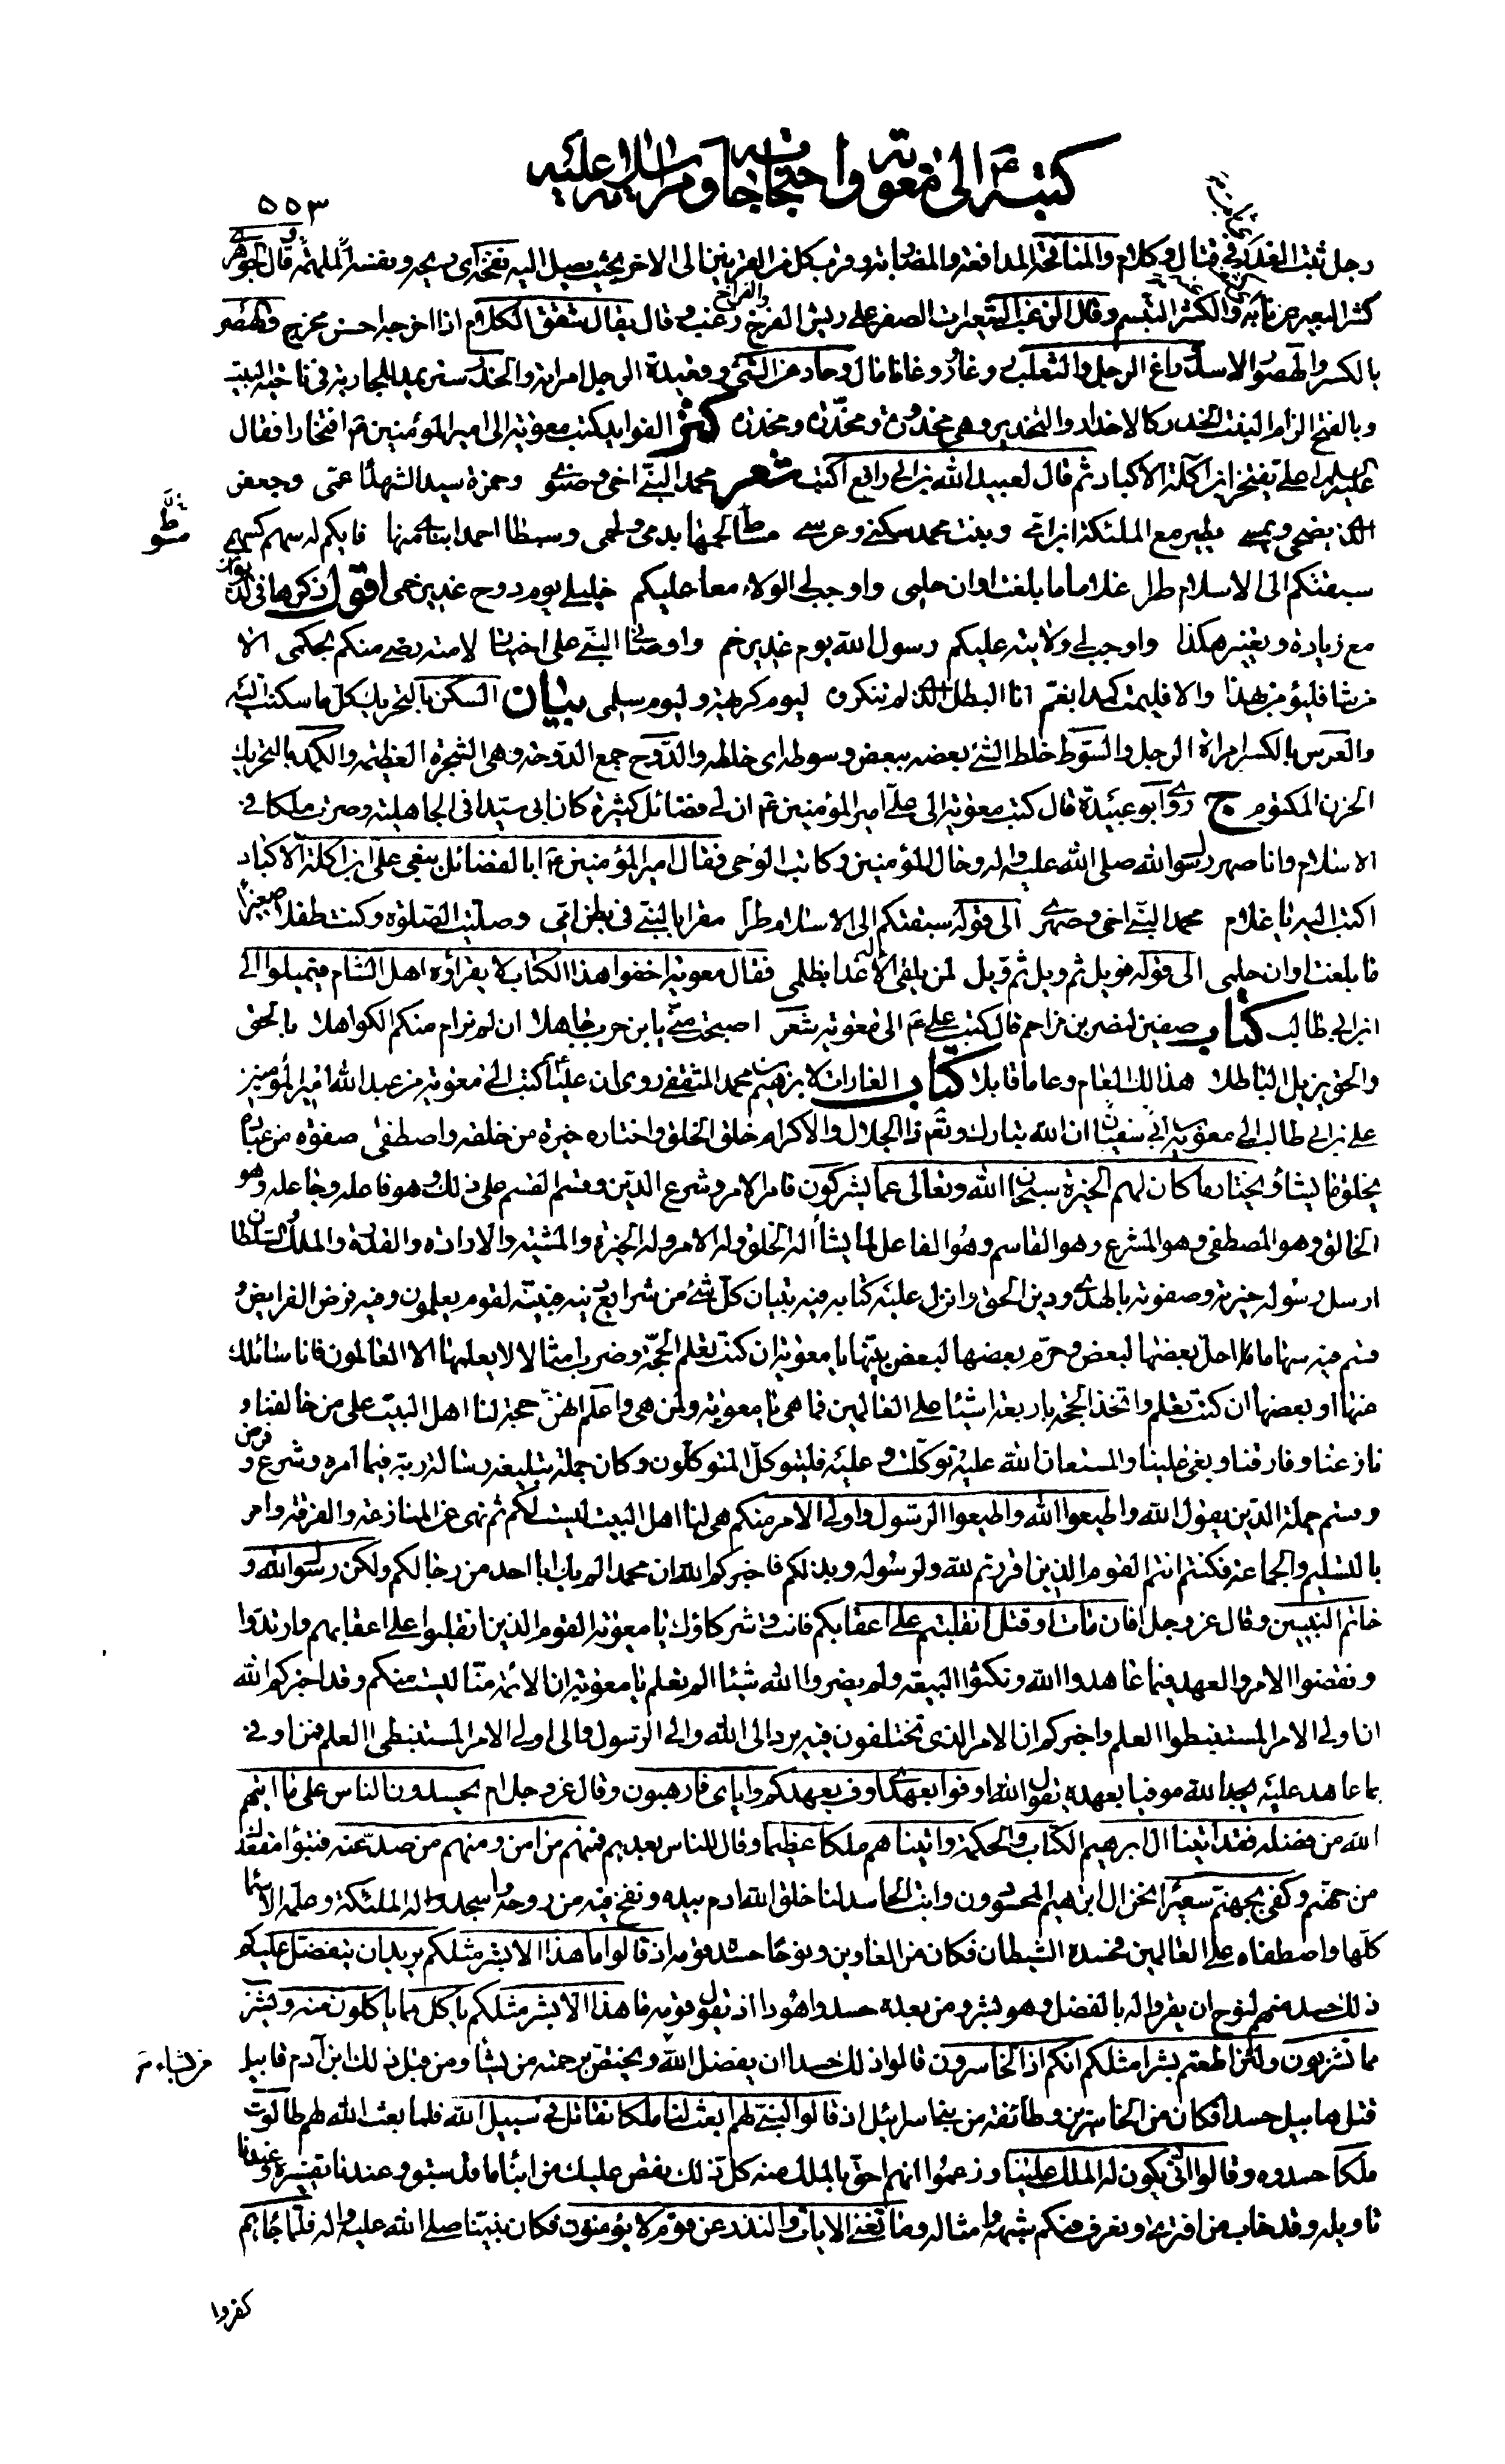 كتبه ع الى معوية واحتجاجاته ومراسلاته عليه
٥٥٣
رجل ثبت الغدر في قتال وكلام والمنافحة المدافعة والمضاربة وقرب كل من القرينين الى الاخر بحيث يصل اليه نفحة اى ريحه ونفسه الملهمة قال الجوهرى
كشر البعير عن نابه والكشر التبسم وقال الزغب الشعيرات الصفر على ريش الفرخ والفراخ زغب و قال يقال شقق الكلام اذا اخرجه احسن مخرج و الهصر
بالكسر والهصور الاسد وراغ الرجل والثعلب روغا وروغانا مال وحاد عن الشئ وقعيدة الرجل امراته والخدر ستر يمد للجارية في ناحية البيت
وبالفتح الزام البنت الخدر كالاخدار والتخدير وهي مخدورة ومخدرة ومخدرة كنز الفوايد كتب معوية الى امير المؤمنين ع افتخارا فقال
عليه السلام اعلى يفتخر ابن آكلة الاكباد ثم قال لعبيد الله بن ابى رافع اكتب شعر محمد النبى اخى وصنوى وحمزة سيد الشهدا عمى وجعفر
الذى يضحى ويمسى يطير مع الملئكة ابن امى وبنت محمد سكنى وعرسى مساط لحمها بدمى ولحمى وسبطا احمد ابناى منها فايكم له سهم كسهمى
سبقتكم الى الاسلام طرا غلاما ما بلغت اوان حلمى واوجب لى الولاء معا عليكم خليلى يوم دوح غدير خم اقول ذكرها في الديوان
مع زيادة وتغيير هكذا واوجب لى ولايته عليكم رسول الله يوم غدير خم واوصانى النبى على اختيار لامته رضى منكم بحكمى الا
من شاء فليؤمن بهذا والا فليمت كمدا بغم انا البطل الذى لم تنكروه ليوم كريهة وليوم سلمى بيان السكن بالتحريك كل ما سكنت اليه
والعرس بالكسر امراة الرجل والسوط خلط الشئ بعضه ببعض وسوطه اى خلطه والدوح جمع الدوحة وهى الشجرة العظيمة والكمد بالتحريك
الحزن المكتوم ج روى ابو عبيدة قال كتب معوية الى على امير المؤمنين ع ان لى فضائل كثيرة كان ابى سيدا في الجاهلية وصرت ملكا في
الاسلام وانا صهر رسول الله صلى الله عليه واله وخال المؤمنين وكاتب الوحى فقال امير المؤمنين ع ابا لفضائل يبغى على ابن اكلة الاكباد
اكتب اليه يا غلام محمد النبى اخى وصهرى الى قوله سبقتكم الى الاسلام طرا مقرا بالنبى في بطن امى وصليت الصلوة وكنت طفلا صغيرا
ما بلغت اوان حلمى الى قوله فويل ثم ويل ثم ويل لمن يلقى الاله غدا بظلمى فقال معوية اخفوا هذا الكتاب لا يقراؤه اهل الشام فيميلوا الى
ابن ابى طالب كتاب صفين لنصر بن مزاحم قال كتب على ع الى معوية شعر اصبحت منى يا ابن حرب جاهلا ان لم نرام منكم الكواهلا بالحق
والحق يزيل الباطلا هذا لك العام وعاما قابلا كتاب الغارات لابرهيم بن محمد الثقفى روى ان عليا ع كتب الى معوية من عبد الله امير المؤمنين
على بن ابى طالب الى معوية بن ابى سفيان ان الله تبارك وتع ذا الجلال والاكرام خلق الخلق واختار خيرة من خلقه واصطفى صفوة من عباده
يخلق ما يشاء ويختار ما كان لهم الخيرة سبحان الله وتعالى عما يشركون فامر الامر وشرع الدين وقسم القسم على ذلك وهو فاعله وجاعله وهو
الخالق وهو المصطفى وهو المشرع وهو القاسم وهو الفاعل لما يشاء له الخلق وله الامر وله الخيرة والمشية والارادة والقدرة والملك والسلطان
ارسل رسوله خيرته وصفوته بالهدى ودين الحق وانزل عليه كتابه فيه تبيان كل شئ من شرايع دينه فبينه لقوم يعلمون وفيه فرض الفرايض و
قسم فيه سهاما احل بعضها لبعض وحرم بعضها لبعض بينها يا معوية ان كنت تعلم الحجة وضرب امثالا لا يعلمها الا العالمون فانا سائلك
عنها او بعضها ان كنت تعلم واتخذ الحجة باربعة اشياء على العالمين فما هى يا معوية ولمن هى واعلم انهن حجة لنا اهل البيت على من خالفنا و
نازعنا وفارقنا وبغى علينا والمستعان الله عليه توكلت وعليه فليتوكل المتوكلون وكان جملة تبليغه رسالة ربه فيما امره وشرع وفرض
وقسم جملة الدين يقول الله واطيعوا الله واطيعوا الرسول واولى الامر منكم هى لنا اهل البيت ليست لكم ثم نهى عن المنازعة والفرقة وامر
بالتسليم والجماعة فكنتم انتم القوم الذين اقررتم لله ولرسوله وبذلكم فاخبركم الله ان محمدا لم يك ابا احد من رجالكم ولكن رسول الله و
خاتم النبيين وقال عز وجل افان مات او قتل انقلبتم على اعقابكم فانت وشركاؤك يا معوية القوم الذين انقلبوا على اعقابهم وارتدوا
ونقضوا الامر والعهد فيما عاهدوا الله ونكثوا البيعة ولم يضروا الله شيئا الم تعلم يا معوية ان الائمة منا ليست منكم وقد اخبركم الله
ان اولى الامر المستنبطوا العلم واخبركم ان الامر الذى تختلفون فيه يرد الى الله والى الرسول والى اولى الامر المستنبطى العلم فمن اوفى
بما عاهد عليه يجد الله موفيا بعهده يقول الله اوفوا بعهدى اوف بعهدكم واياى فارهبون وقال عز وجل ام يحسدون الناس على ما اتيهم
الله من فضله فقد اتينا ال ابرهيم الكتاب والحكمة واتيناهم ملكا عظيما وقال للناس بعدهم فمنهم من امن ومنهم من صد عنه فتبؤا مقعدك
من جهنم وكفى بجهنم سعيرا نحن ال ابرهيم المحسودون وانت الحاسد لنا خلق الله ادم بيده ونفخ فيه من روحه واسجد له الملئكة وعلمه الاسماء
كلها واصطفاه على العالمين فحسده الشيطان فكان من الغاوين ونوحا حسده قومه اذ قالوا ما هذا الا بشر مثلكم يريد ان يتفضل عليكم
ذلك حسد منهم لنوح ان يقروا له بالفضل وهو بشر ومن بعده حسدوا هودا اذ يقول قومه ما هذا الا بشر مثلكم ياكل مما ياكلون منه ويشرب
مما تشربون ولئن اطعتم بشرا مثلكم انكم اذا لخاسرون قالوا ذلك حسدا ان يفضل الله ويختص برحمته من يشاء ومن قبل ذلك ابن آدم قابيل
من يشاء
قتل هابيل حسدا فكان من الخاسرين وطائفة من بنى اسرائيل اذ قالوا لنبى لهم ابعث لنا ملكا نقاتل في سبيل الله فلما بعث الله لهم طالوت
ملكا حسدوه وقالوا انى يكون له الملك علينا وزعموا انهم احق بالملك منه كل ذلك نقص عليك من انباء ما قد سبق وعندنا تفسيره وعندنا
تاويله وقد خاب من افترى ونعرف فيكم شبهه وامثاله وما تغنى الايات والنذر عن قوم لا يؤمنون فكان نبينا صلى الله عليه واله فلما جاءهم
كفروا